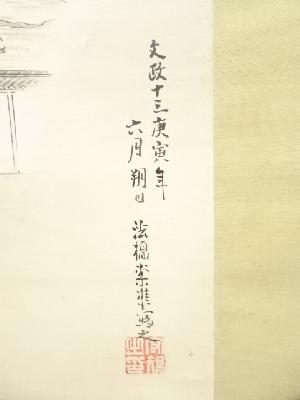 文政十三庚寅年
六月朔日
法橋素準写之